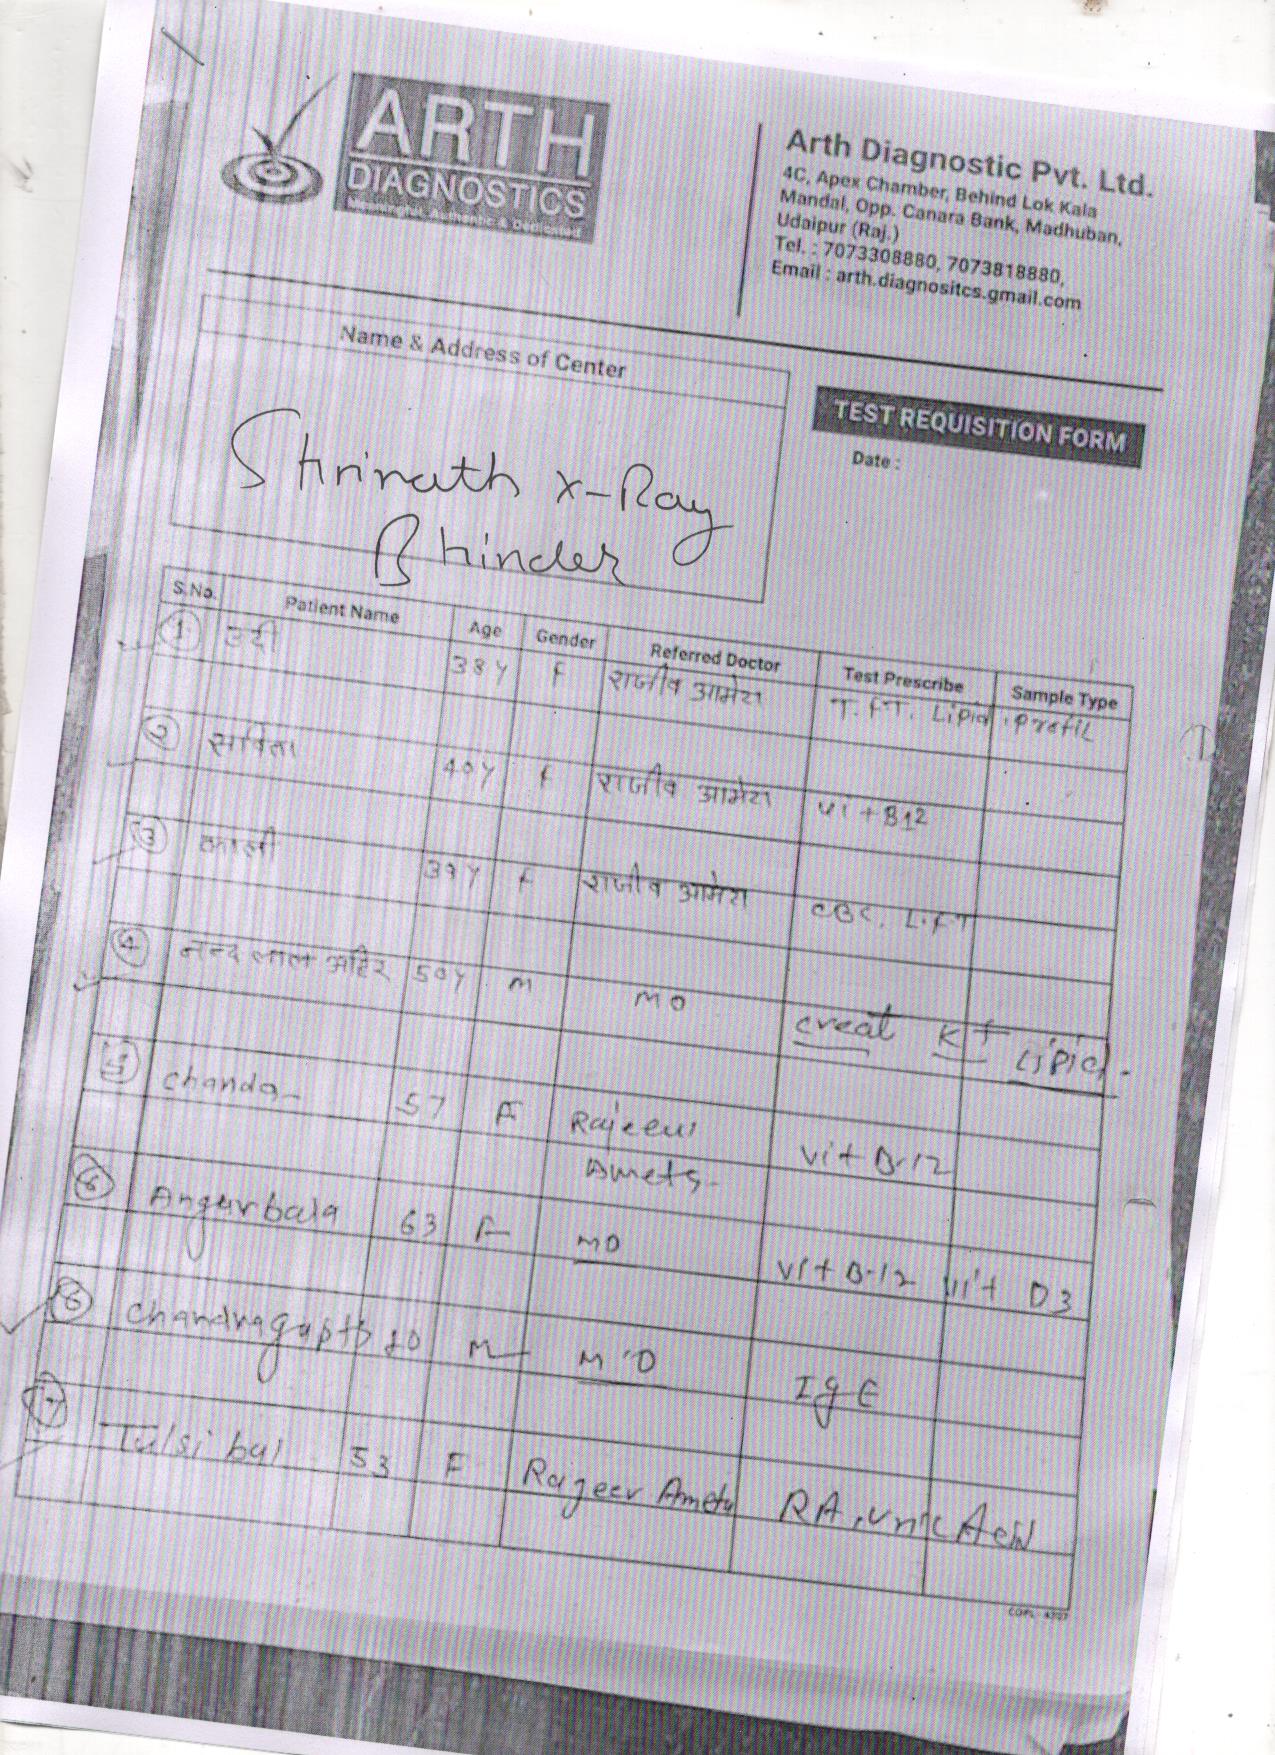 ARTH
DIAGNOSTICS
Meaningful, Authentic & Dedicated
Arth Diagnostic Pvt. Ltd.
4C, Apex Chamber, Behind Lok Kala
Mandal, Opp. Canara Bank, Madhuban,
Udaipur (Raj.)
Tel. : 7073308880, 7073818880,
Email : arth.diagnositcs.gmail.com
Name & Address of Center
Shrinath X-Ray
Bhinder
TEST REQUISITION FORM
Date :
S.No. Patient Name Age Gender Referred Doctor Test Prescribe Sample Type
1 उदी 38y F राजीव आमेटा T.F.T. Lipid profil
2 सविता 40y F राजीव आमेटा Vit B12
3 काली 39y F राजीव आमेटा CBC, L.F.T
4 नन्द लाल अहिर 50y M MO creat KFT Lipid.
5 Chanda 57 F Rajeev
Ameta Vit B-12
6 Angurbala 63 F MO Vit B-12 Vit D3
6 Chandragupt M M'O IgE
7 Tulsi bai 53 F Rajeev Ameta RA, Uric Acid